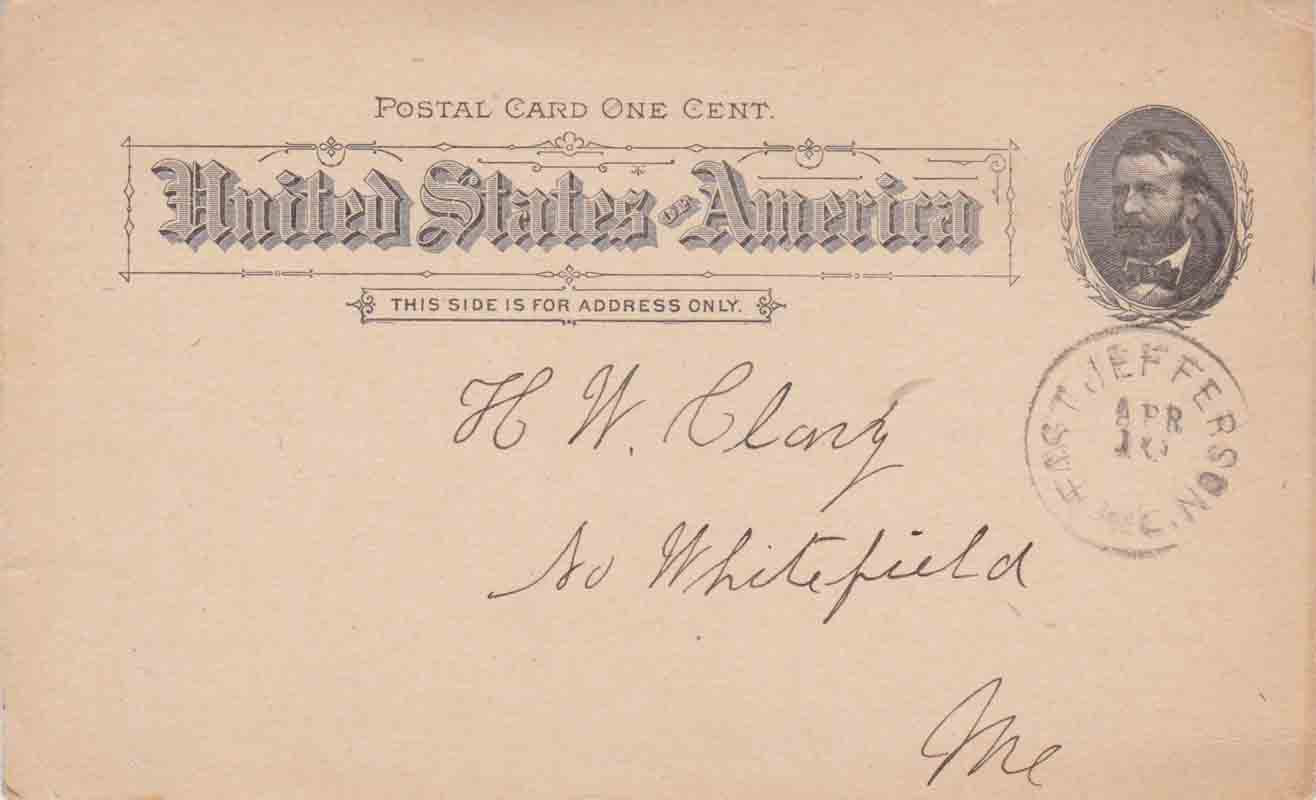 POSTAL CARD ONE CENT.
United States OF America
THIS SIDE IS FOR ADDRESS ONLY.
EAST JEFFERSON, ME.
APR
H W. Clary
So Whitefield
Me